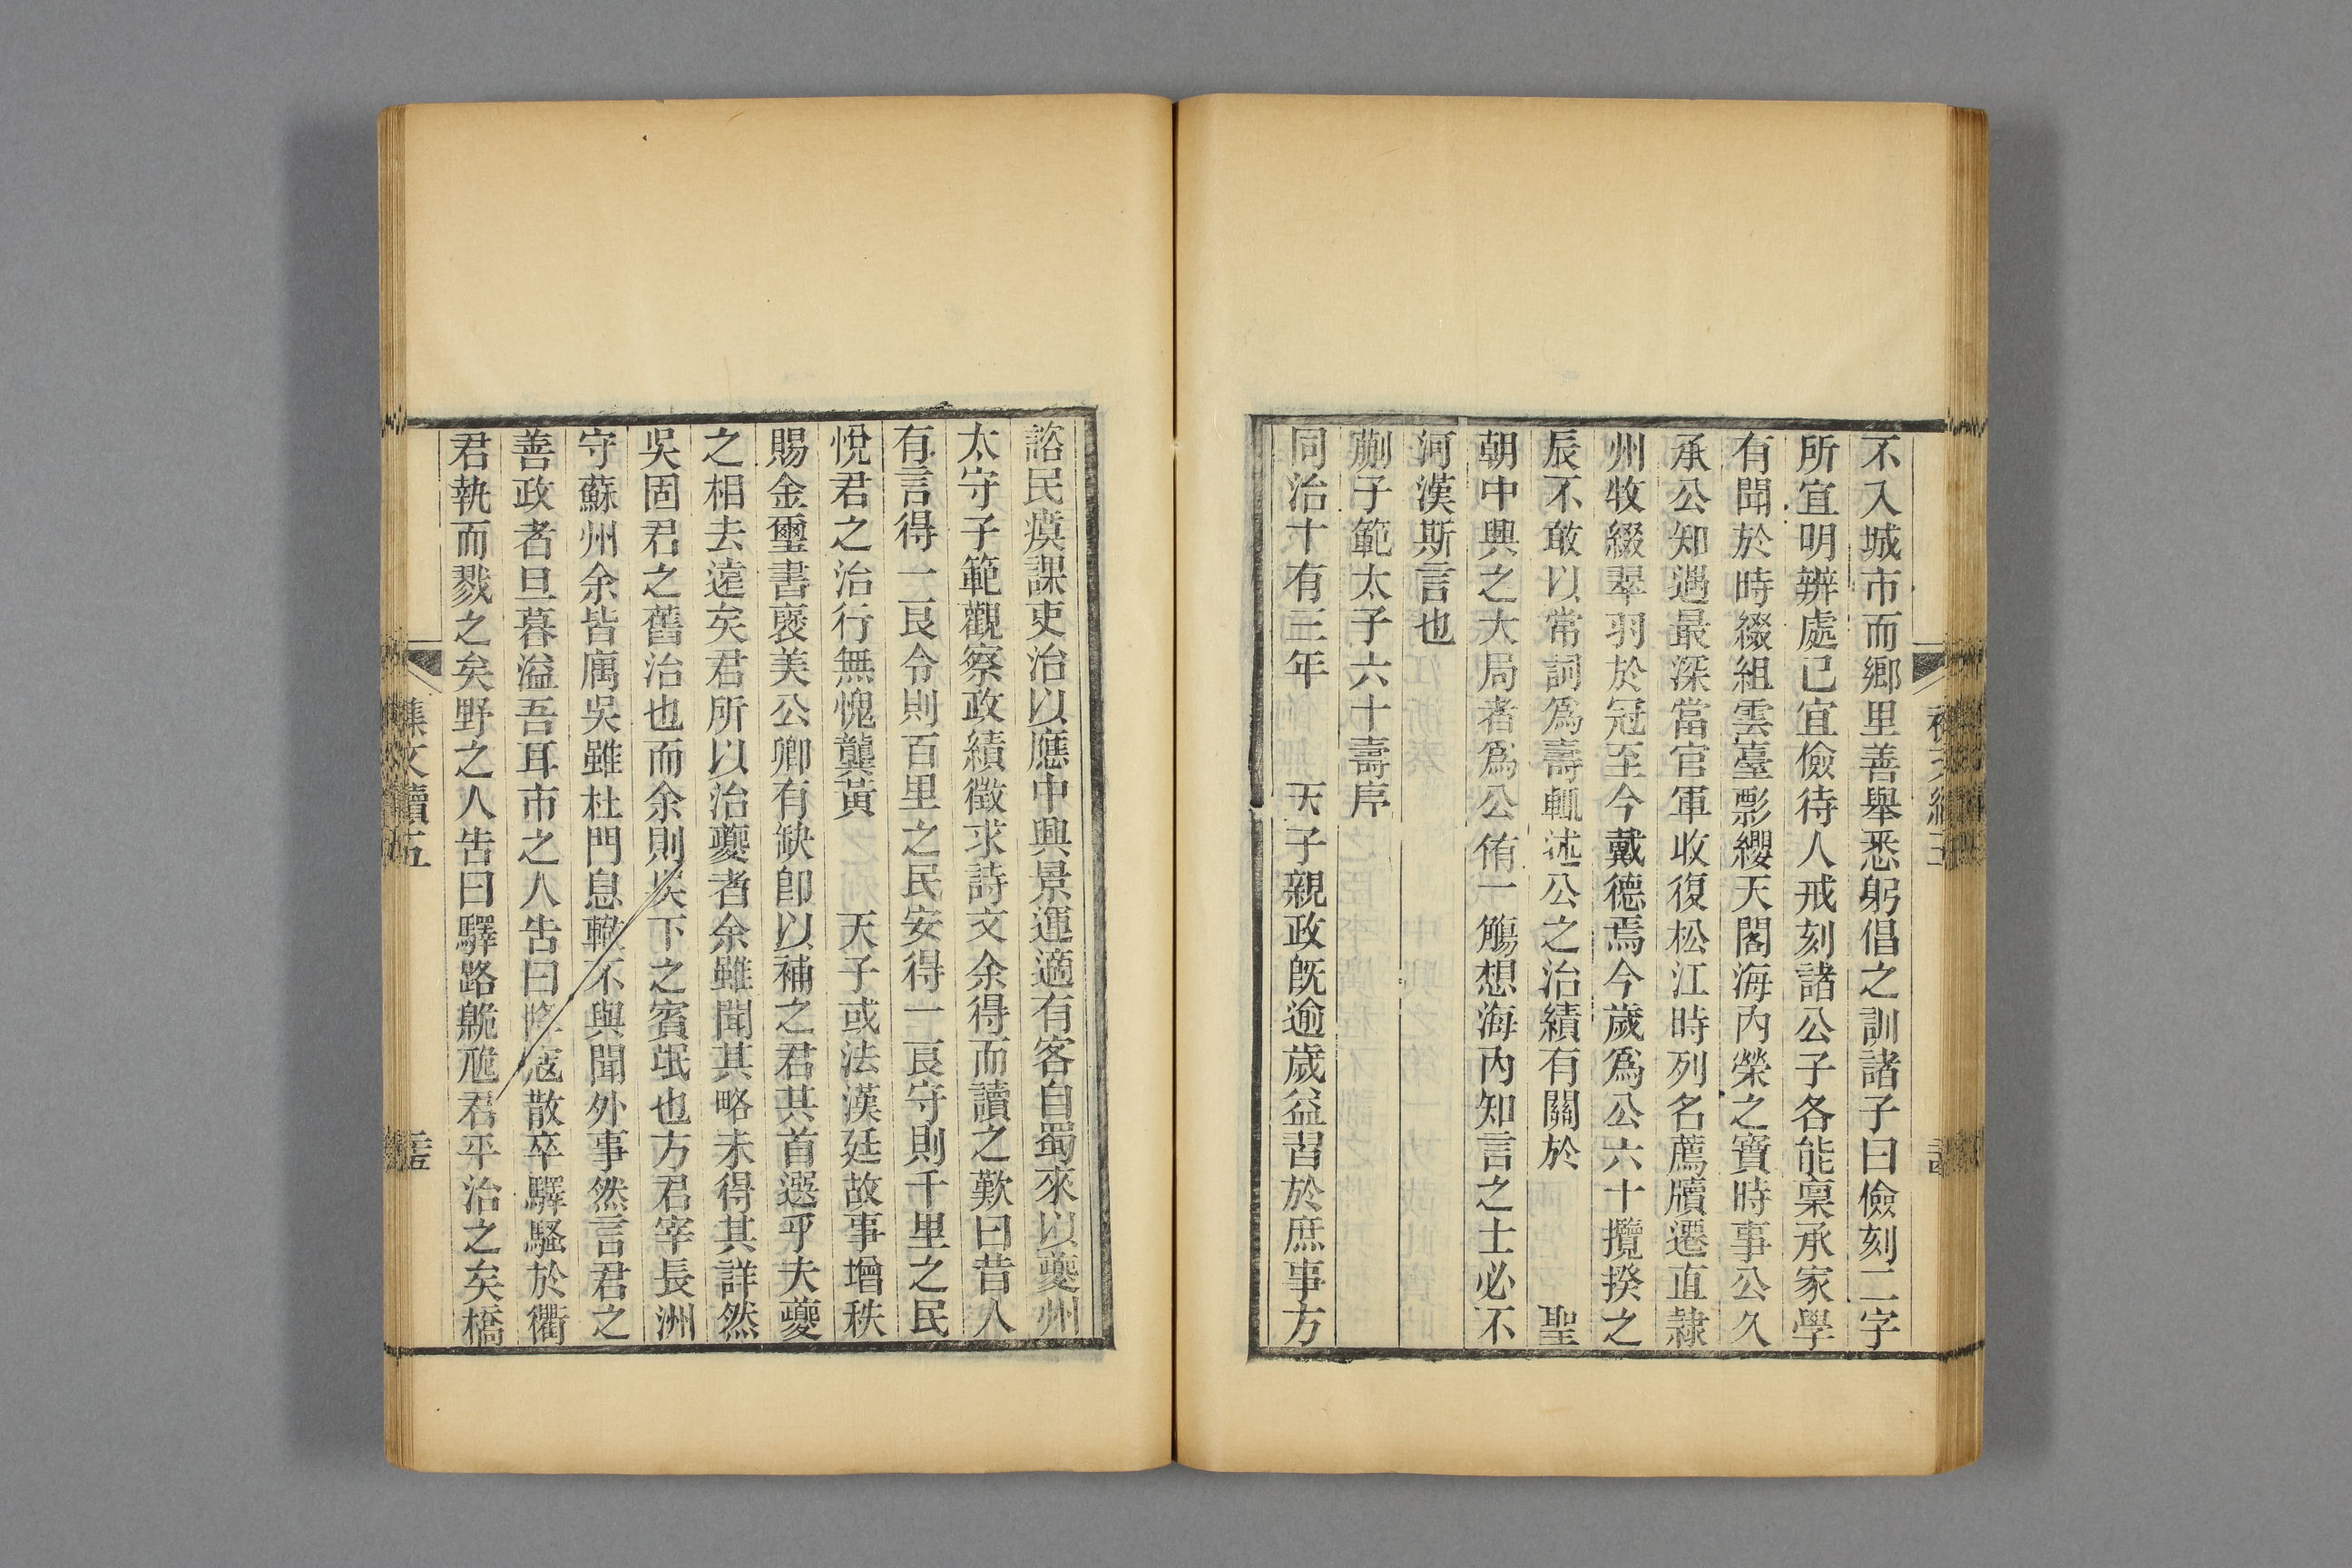 不入城市而鄉里善舉悉躬倡之訓諸子曰儉刻二字
所宜明辨處已宜儉待人戒刻諸公子各能稟承家學
有聞於時綴組雲臺影纓天閣海內榮之寶時事公久
承公知遇最深當官軍收復松江時列名薦牘遷直隸
州牧綴翠羽於冠至今戴德焉今歲爲公六十攬揆之
辰不敢以常詞爲壽輒述公之治績有關於　聖
朝中興之大局者爲公侑一觴想海內知言之士必不
河漢斯言也
蒯子範太子六十壽序
同治十有三年　天子親政既逾歲益習於庶事方
諮民瘼課吏治以應中興景運適有客自蜀來以夔州
太守子範觀察政績徵求詩文余得而讀之歎曰昔人
有言得一良令則百里之民安得一良守則千里之民
悅君之治行無愧龔黃　天子或法漢廷故事增秩
賜金璽書襃美公卿有缺卽以補之君其首選乎夫夔
之相去遠矣君所以治夔者余雖聞其略未得其詳然
吳固君之舊治也而余則吳下之賓氓也方君宰長洲
守蘇州余皆寓吳雖杜門息轍不與聞外事然言君之
善政者旦暮溢吾耳市之人告曰降寇散卒驛騷於衢
君執而戮之矣野之人告曰驛路臲卼君平治之矣橋
集文續五